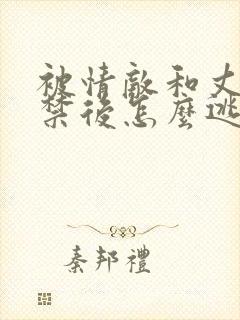 被情敵和丈
禁後怎麼逃
秦邦禮